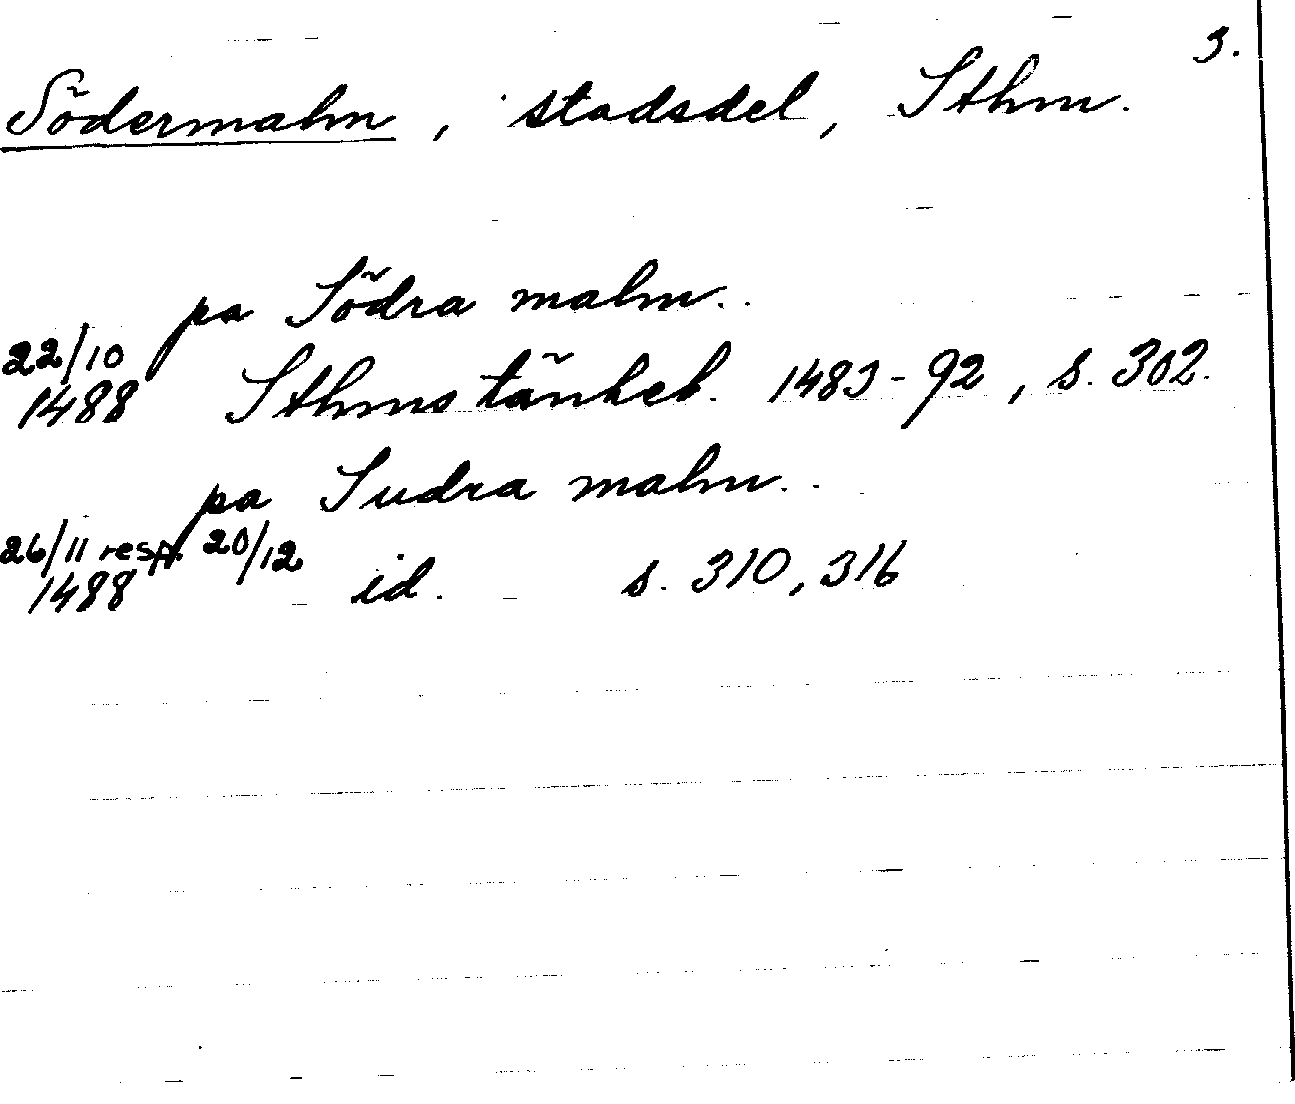 3.
Södermalm, stadsdel, Sthm.
pa Södra malm..
22/10 1488 Sthms tänkeb. 1483-92, s. 302.
pa Sudra malm..
26/11 resp. 20/12 1488 id. s. 310, 316